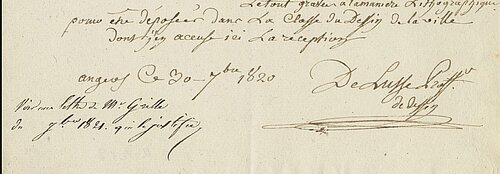 Le tout gravé à la manière Lithographique
pour être déposés dans La Classe du Dessin de la ville
dont j'en accuse ici La reception
angers Ce 30 7bre 1820
DeLusse Proff.r
de dessin
Voir une lettre de Mr. Grille
du 7bre 1821. qui le justifie